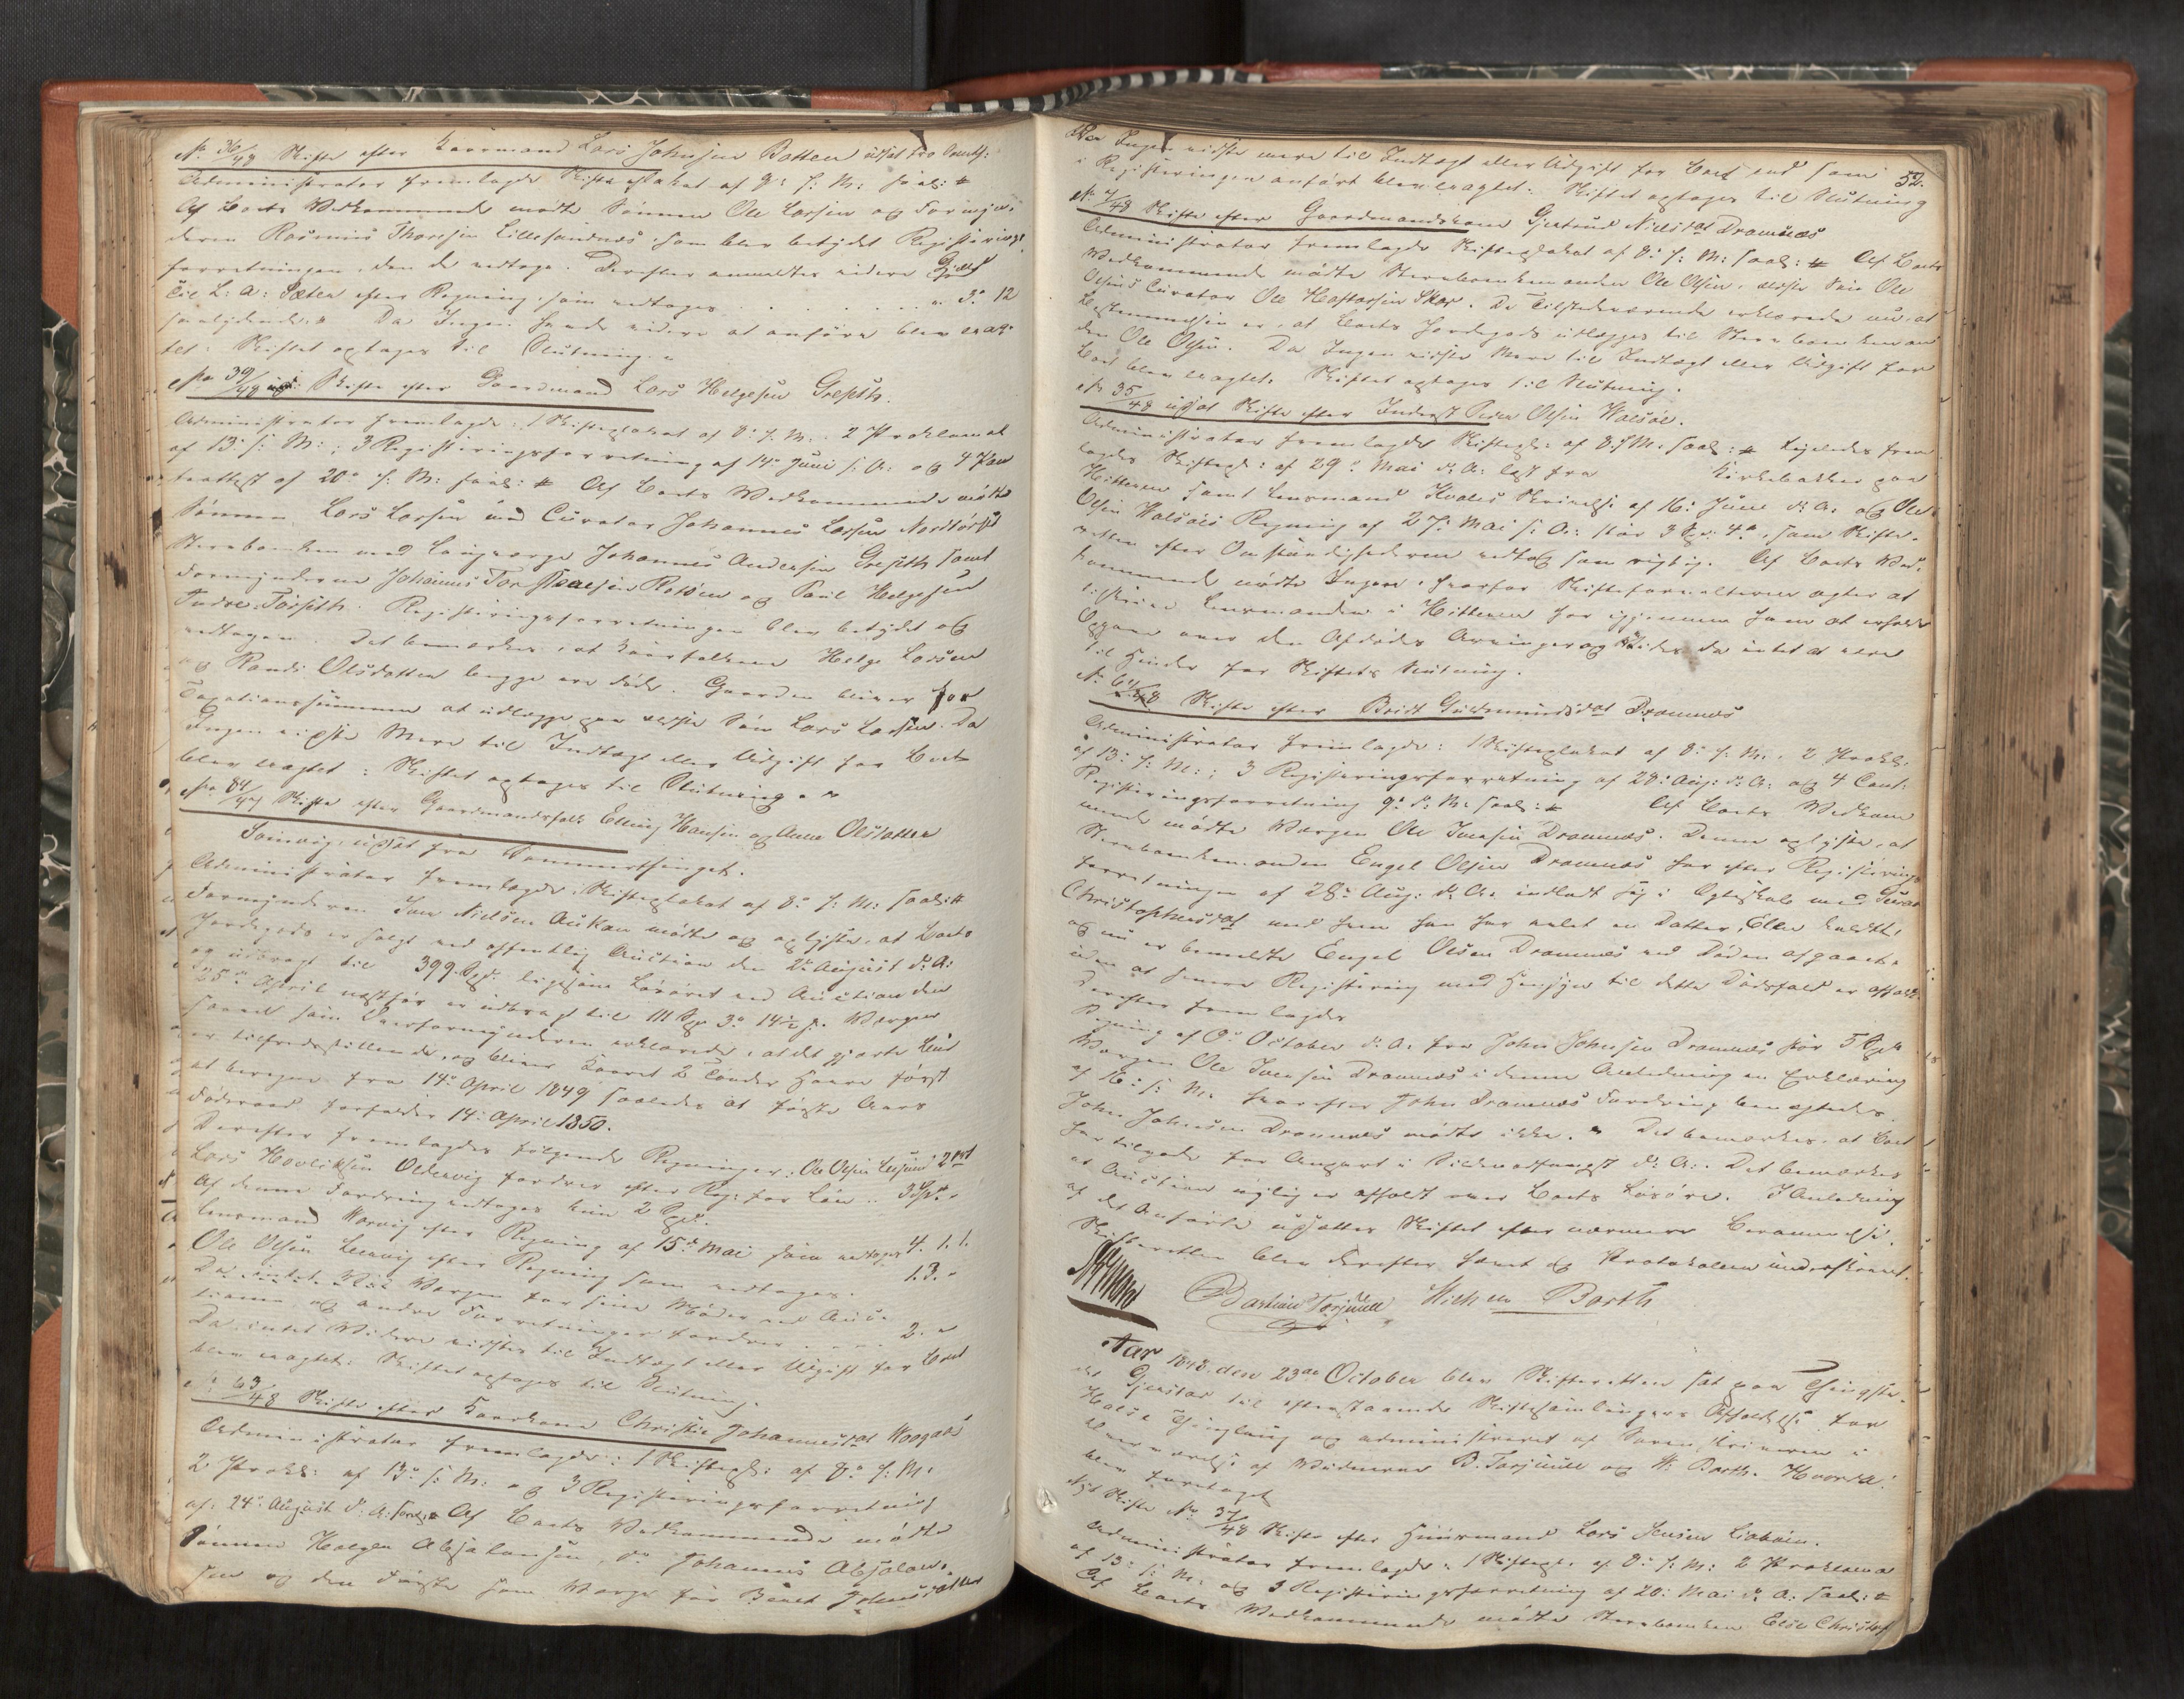 No 36/48 Skifte efter Kaarmand Lars Johnsen Botten udsat fra Aar
Administrator fremlagde Skifteplakat af 9de f: M: saal: #
Af Boets Vedkommende mødte Sønnen Ole Larsen og Formyn-
deren Rasmus Thoresen Lillesandnæs, som blev betydet Registrerings-
forretningen, den de vedtoge. Derefter anmeldtes videre Gjæld
til L: A: Sæter efter Regning, som vedtoges . . . . . „ 3. 12
saalydende: # Da Ingen havde videre at anføre blev erag-
tet: Skiftet optages til Slutning. „
No 39/48 Skifte efter Gaardmand Lars Helgesen Grepsth.
Administrator fremlagde: 1 Skifteplakat af 8: f: M: 2 Proklama
af 13: s: M:; 3 Registreringsforretning af 14de Juni s: A: og 4
af 20de f: M: saal: # Af Boets Vedkommende mødte
Sønnen Lars Larsen med Curator Johannes Larsen
Sterboenken med Laugværge Johannes Andersen Grepsth samt
Formynderne Johannes og Poul Helgesen
Indre Forsth. Registreringsforretningen blev betydet og
vedtagen. Det bemærkes, at Kaarfolkene Helge Larsen
og Randi Olsdatter begge ere døde. Gaarden bliver for
Taxationssummen at udlægge paa ældste Søn Lars Larsen. Da
Ingen vidste Mere til Indtægt eller Udgift for Boet
blev eragtet: Skiftet optages til Slutning. „
No 84/47 Skifte efter Gaardmandsfolk Elling Hansen og Anne Olsdatter
udsat fra Sommerthinget.
Administrator fremlagde: Skifteplakat af 8de f: M: saal: #
Formynderen Iver Nielsen Aukan mødte og oplyste, at Boets
Jordegods er solgt ved offentlig Auction den 2de August d: A:
og udbragt til 399 Spd. ligesom Løsøret ved Auction den
25de April næstfør er udbragt til 111 Spd 3 14½ s. Værgen
saavel som Overformynderen erklærede, at det gjorte Bud
var tilfredsstillende, og bliver Kaaret 2 Tønder Havre først
at beregne fra 14de April 1849 saaledes at første Aars
Føderaad forfalder 14: April 1850.
Derefter fremlagdes følgende Regninger: Ole Olsen
Lars Oldervig fordrer efter Reg: for Løn .. 3 Spd. „
Af denne Fordring vedtages kun 2 Spd.
Lensmand Norvig efter Regning af 15de Mai som vedtoges 4. 1. 1.
Ole Olsen Leervig efter Regning som vedtoges. 1. 3. „
Værgen for sine Møder ved Auc-
tionen og andre Forretninger fordrer . . . . 2. „
Da intet Videre vidstes til Indtægt eller Udgift for Boet
blev eragtet: Skiftet optages til Slutning.
No 63/48 Skifte efter Kaarkone Christie Johannesdat Waagaas
Administrator fremlagde: 1 Skiftepl: af 8de f: M:
2 Prokl: af 13de s: M: og 3 Registreringsforretning
af 24de August d: A: saal: # Af Boets Vedkommende mødte
Sønnen Halgen Absalonsen, do Johannes Absalon-
sen og den Første som Værge for Beret Johnsdatter
52.
Da Ingen vidste mere til Indtægt eller Udgift for Boet end som
i Registreringen anført blev eragtet: Skiftet optages til Slutning
No /48 Skifte efter Gaardmandskone Gjertrud Nielsdat Dromnæs
Administrator fremlagde Skifteplakat af 8de f: M: saal: # Af Boets
Vedkommende mødte Sterboenkemanden Ole Olsen, ældste Søn Ole
Olsens Curator Ole Haftorsen Skar. De Tilstedeværende erklærede nu, at
Bestemmelsen er, at Boets Jordegods udlægges til Sterboenkeman-
den Ole Olsen. Da Ingen vidste Mere til Indtægt eller Udgift for
Boet blev eragtet: Skiftet optages til Slutning.
No 35/48 udsat Skifte efter Inderst Peder Olsen Walsøe.
Administrator fremlagde Skiftepl: af 8. f. M. saal: # Ligeledes frem-
lagdes Skiftepl: af 29de Mai d: A: læst fra Kirkebakken paa
Hitteren samt Lensmand Skrivelse af 16: Juni d: A: og Ole
Olsen Walsøes Regning af 27: Mai s: A: stor 3 Spd: 4 , som Skifte-
retten efter Omstændighederne vedtog som rigtig. Af Boets Ved-
kommende mødte Ingen, hvorfor Skifteforvalteren agter at
tilskrive Lensmanden i Hitteren for igjennem ham at erholde
Opgave over den Afdødes Arvinger og da intet at være
til Hinder for Skiftets Slutning.
No 61/48 Skifte efter Bridt Gudmundsdat Dromnæs
Administrator fremlagde: 1 Skifteplakat af 8: f: M:, 2 Prokl:
af 13: s: M:; 3 Registreringsforretning af 28: Aug: d: A: og 4 Cont:
Registreringsforretning 9: d: M: saal: # Af Boets Vedkom-
mende mødte Værgen Ole Iversen Dromnæs. Denne oplyste, at
Sterboenkemanden Engel Olsen Dromnæs har efter Registrerings-
forretningen af 28de Aug: d: A: indladt sig i Ægteskab med
Christophersdat med hvem han har avlet en Datter, Ellen kaldet,
og nu er bemeldte Engel Olsen Dromnæs ved Døden afgaaet,
uden at senere Registrering med Hensyn til dette Dødsfald er afholdt.
Derefter fremlagdes
Regning af 8: October d: A: fra John Johnsen Dromnæs stor 5 Spd
Værgen Ole Iversen Dromnæs i denne Anledning en Erklæring
af 16: s: M: hvorefter John Dromnæs Fordring benægtedes.
John Johnsen Dromnæs mødte ikke. „ Det bemærkes, at Boet
har tilgode for Anpart i Sildevadfangst d: A:. Det bemærkes
at Auction nylig er afholdt over Boets Løsøre. I Anledning
af det Anførte udsattes Skiftet efter nærmere Berammelse.
Skifteretten blev derefter hævet og Protokollen underskrevet.
Bastian Torjull Wilhelm Barth
Aar 1848. den 23de October blev Skifteretten sat paa Thingste-
det Gjerstad til efterstaaende Skiftesamlingers Afholdelse for
Halse Thinglaug og administreret af Sorenskriveren i
Overværelse af Vidnerne B. Torjull og W: Barth. Hvorda:
blev foretaget
Nyt Skifte No 37/48 Skifte efter Huusmand Lars Jensen Liabøen.
Administrator fremlagde: 1 Skiftepl. af 8: f: M: 2 Proklama
af 13: s: M: og 3 Registreringsforretning af 20: Mai d: A: saal: #
Af Boets Vedkommende mødte Sterboenken Else Christof